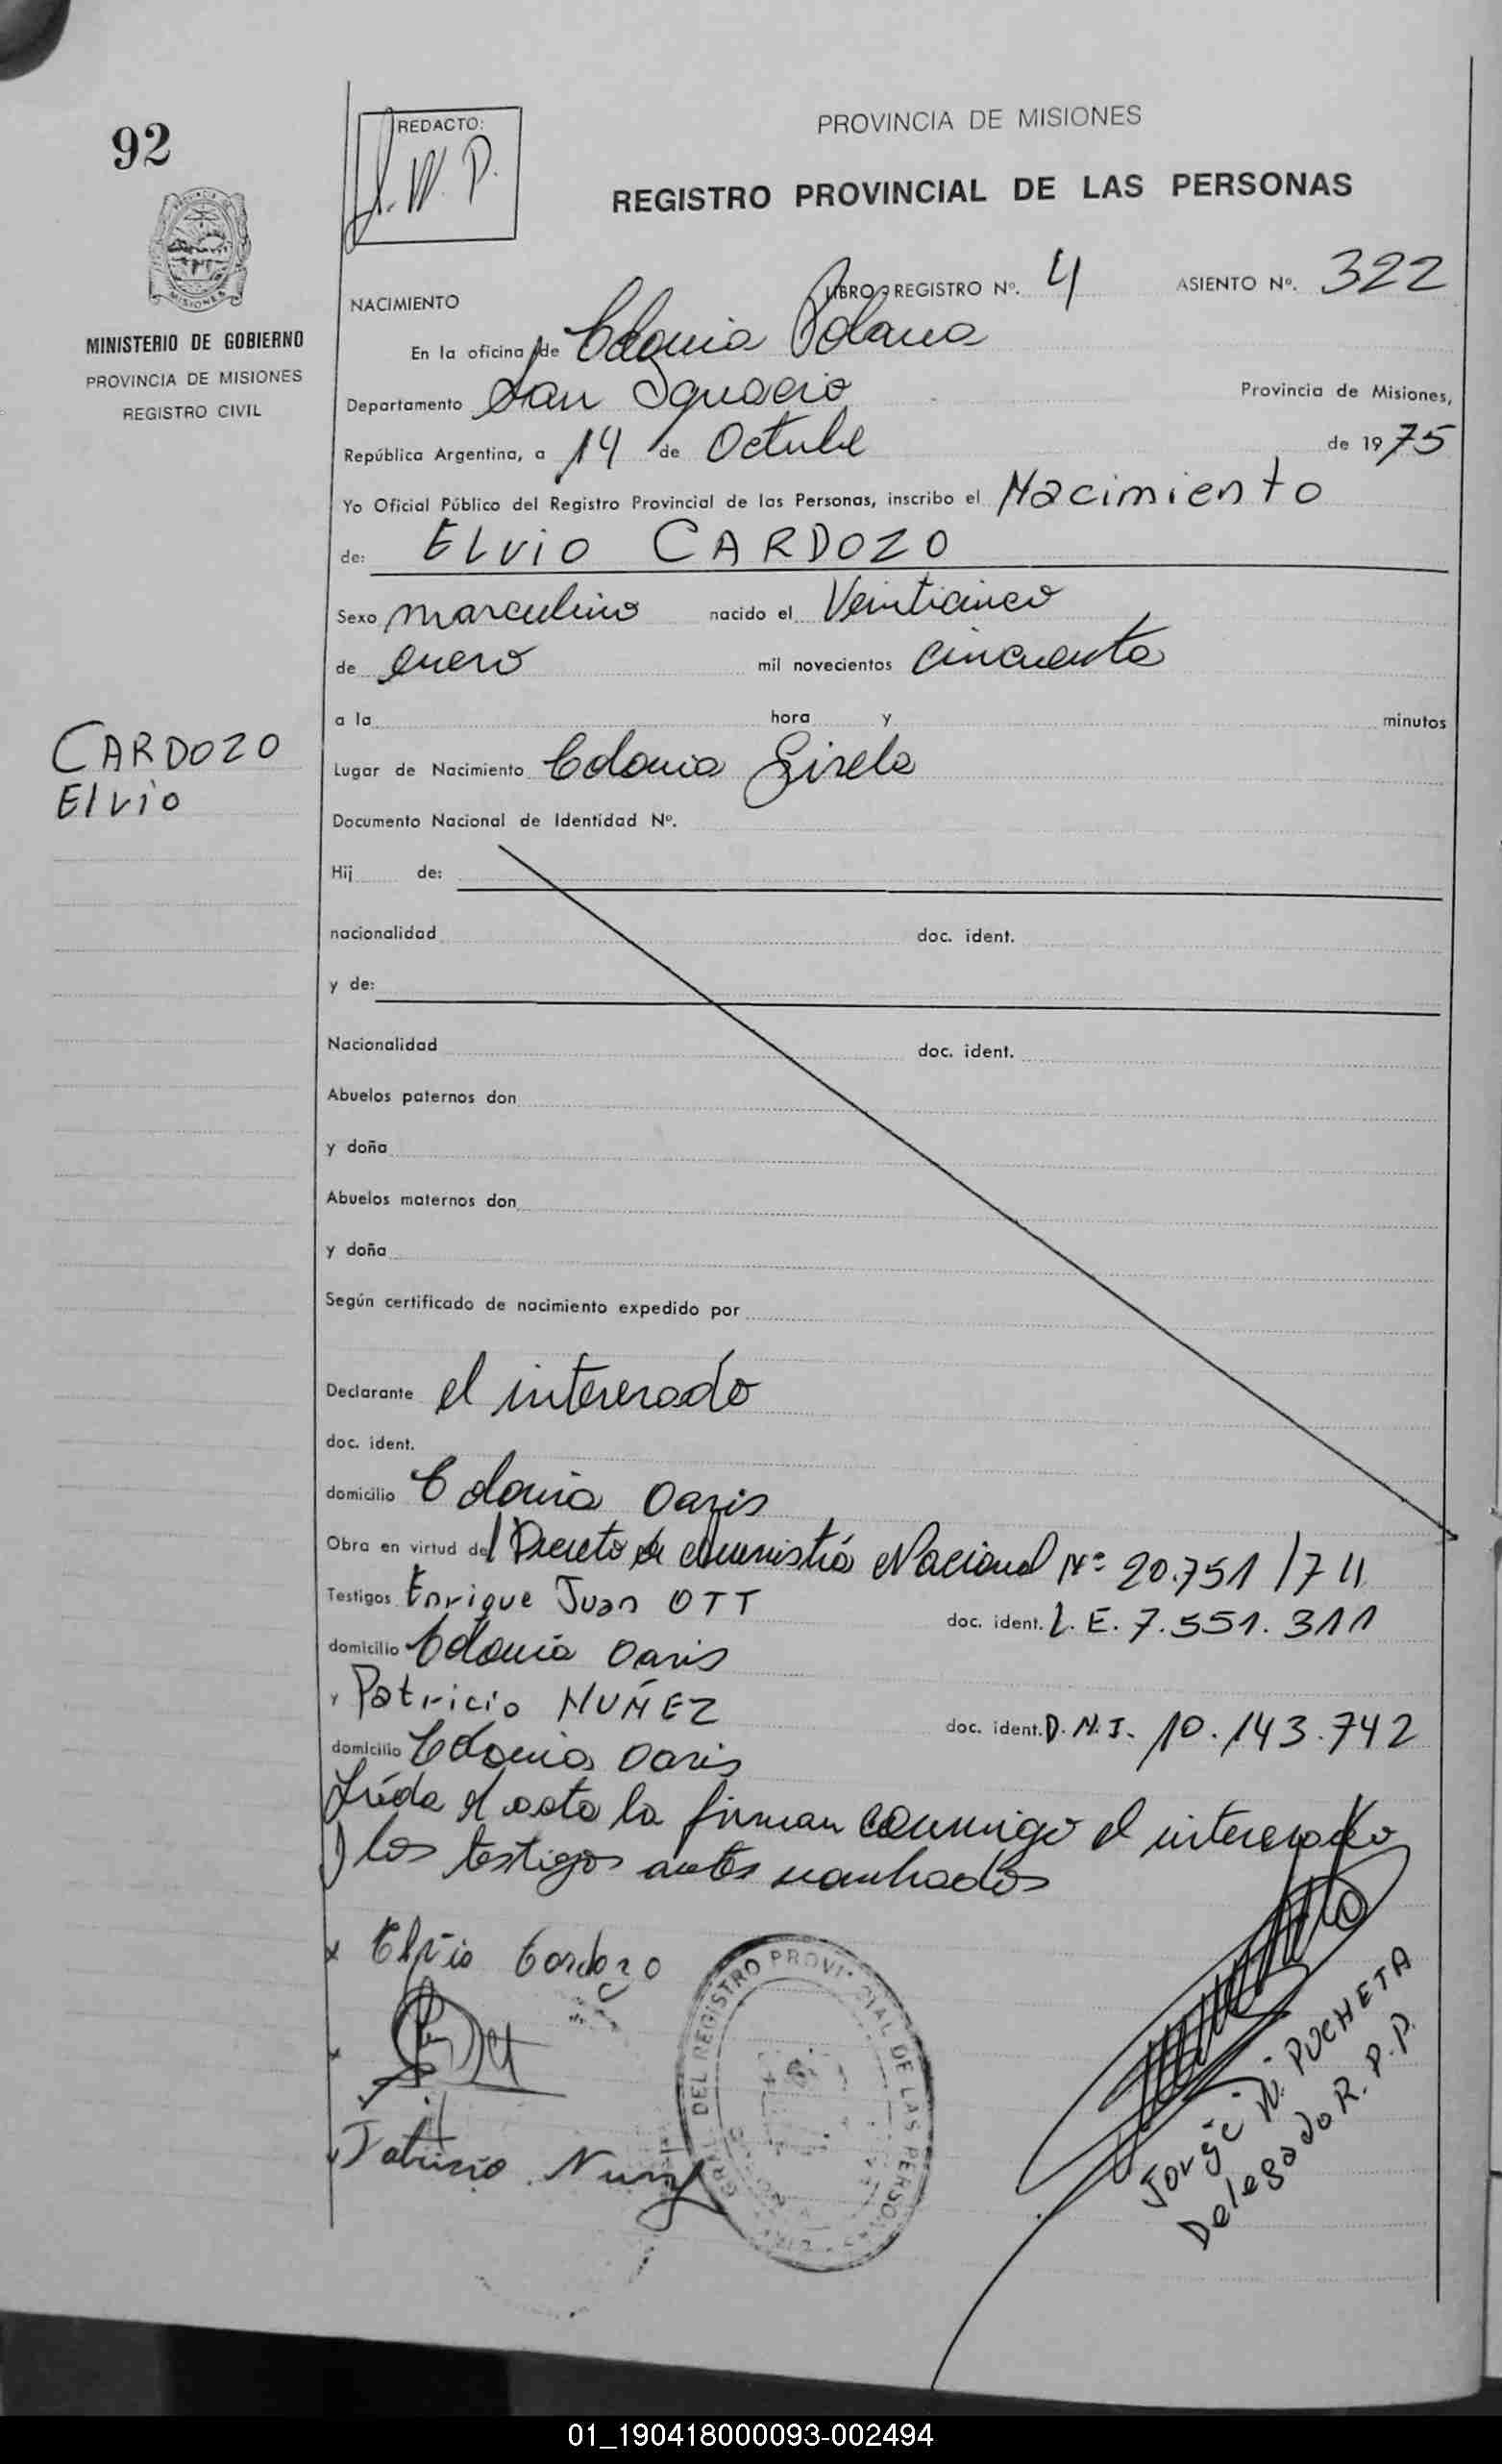 92
REDACTO:
J. W. P.
PROVINCIA DE MISIONES
REGISTRO PROVINCIAL DE LAS PERSONAS
MISIONES
MINISTERIO DE GOBIERNO
PROVINCIA DE MISIONES
REGISTRO CIVIL
LIBRO - REGISTRO Nº. 4 ASIENTO Nº. 322
NACIMIENTO
En la oficina de Colonia Polana
Departamento San Ignacio Provincia de Misiones,
República Argentina, a 14 de Octubre de 1975
Yo Oficial Público del Registro Provincial de las Personas, inscribo el Nacimiento
de: ELVIO CARDOZO
Sexo masculino nacido el Veinticinco
de enero mil novecientos cincuenta
a la hora y minutos
CARDOZO
Elvio
Lugar de Nacimiento Colonia Gisela
Documento Nacional de Identidad Nº.
Hij de:
nacionalidad doc. ident.
y de:
Nacionalidad doc. ident.
Abuelos paternos don
y doña
Abuelos maternos don
y doña
Según certificado de nacimiento expedido por
Declarante el interesado
doc. ident.
domicilio Colonia Oasis
Obra en virtud del Decreto de Amnistía Nacional Nº 20.751/74
Testigos Enrique Juan OTT doc. ident. L. E. 7.551.311
domicilio Colonia Oasis
y Patricio NUÑEZ doc. ident. D.N.I. 10.143.742
domicilio Colonia Oasis
Leída el acta la firman conmigo el interesado
y los testigos antes nombrados
x Elvio Cardozo
Patricio Nuñez
DEL REGISTRO PROVINCIAL DE LAS PERSONAS
Jorge W. PUCHETA
Delegado R.P.P.
01_190418000093-002494